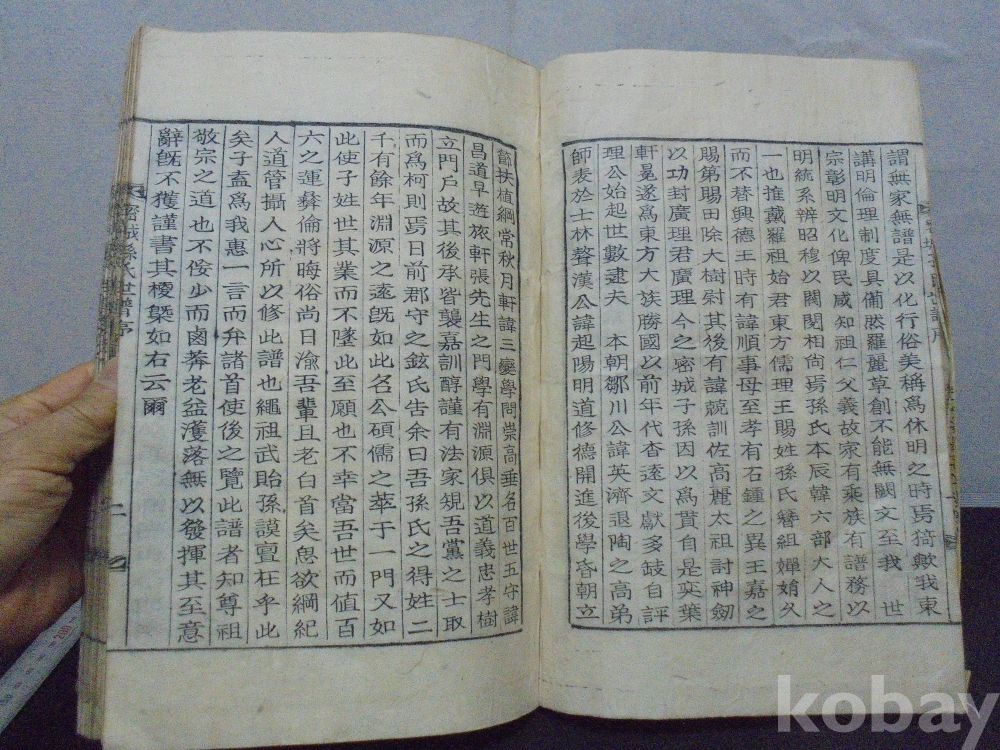 謂無家無譜是以化行俗美稱爲休明之時焉猗歟我東
講明倫理制度具備然羅麗草創不能無闕文至我　世
宗彰明文化俾民咸知祖仁父義故家有乘族有譜務以
明統系辨昭穆以閥閱相尙焉孫氏本辰韓六部大人之
一也推戴羅祖始君東方儒理王賜姓孫氏簪組嬋媠久
而不替興德王時有諱順事母至孝有石鍾之異王嘉之
賜第賜田除大樹尉其後有諱兢訓佐高麗太祖討神劒
以功封廣理君廣理今之密城子孫因以爲貫自是奕葉
軒冕遂爲東方大族勝國以前年代杳遠文獻多缺自評
理公始起世數逮夫　本朝鄒川公諱英濟退陶之高弟
師表於士林聱漢公諱起陽明道修德開進後學昏朝立
節扶植綱常秋月軒諱三變學問崇高垂名百世五守諱
昌道早遊旅軒張先生之門學有淵源俱以道義忠孝樹
立門戶故其後承皆襲嘉訓醇謹有法家規吾黨之士取
而爲柯則焉日前郡守之鉉氏告余曰吾孫氏之得姓二
千有餘年淵源之遠旣如此名公碩儒之萃于一門又如
此使子姓世其業而不墜此至願也不幸當吾世而値百
六之運彝倫將晦俗尙日渝吾輩且老白首矣思欲綱紀
人道管攝人心所以修此譜也繩祖武貽孫謨亶在乎此
矣子盍爲我惠一言而弁諸首使後之覽此譜者知尊祖
敬宗之道也不佞少而鹵莽老益濩落無以發揮其至意
辭旣不獲謹書其槩如右云爾
密城孫氏世譜序
二
kobay